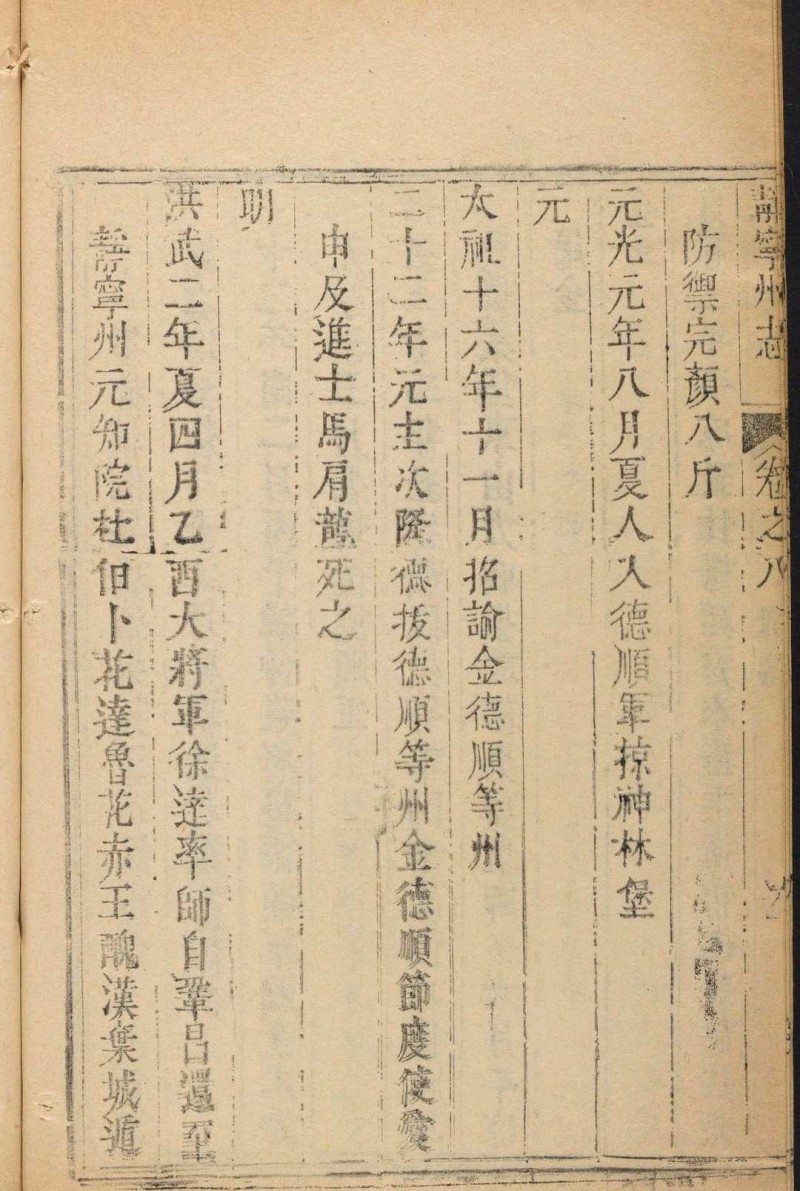 靜寧州志 卷之八
防禦完顏八斤
元光元年八月夏人入德順軍掠神林堡
元
太祖十六年十一月招諭金德順等州
二十二年元主次隆德拔德順等州金德順節度使愛
申及進士馬肩龍死之
明
洪武二年夏四月乙酉大將軍徐逹率師自鞏昌還至
靜寧州元知院杜伯卜花逹魯花赤王醜漢棄城遁